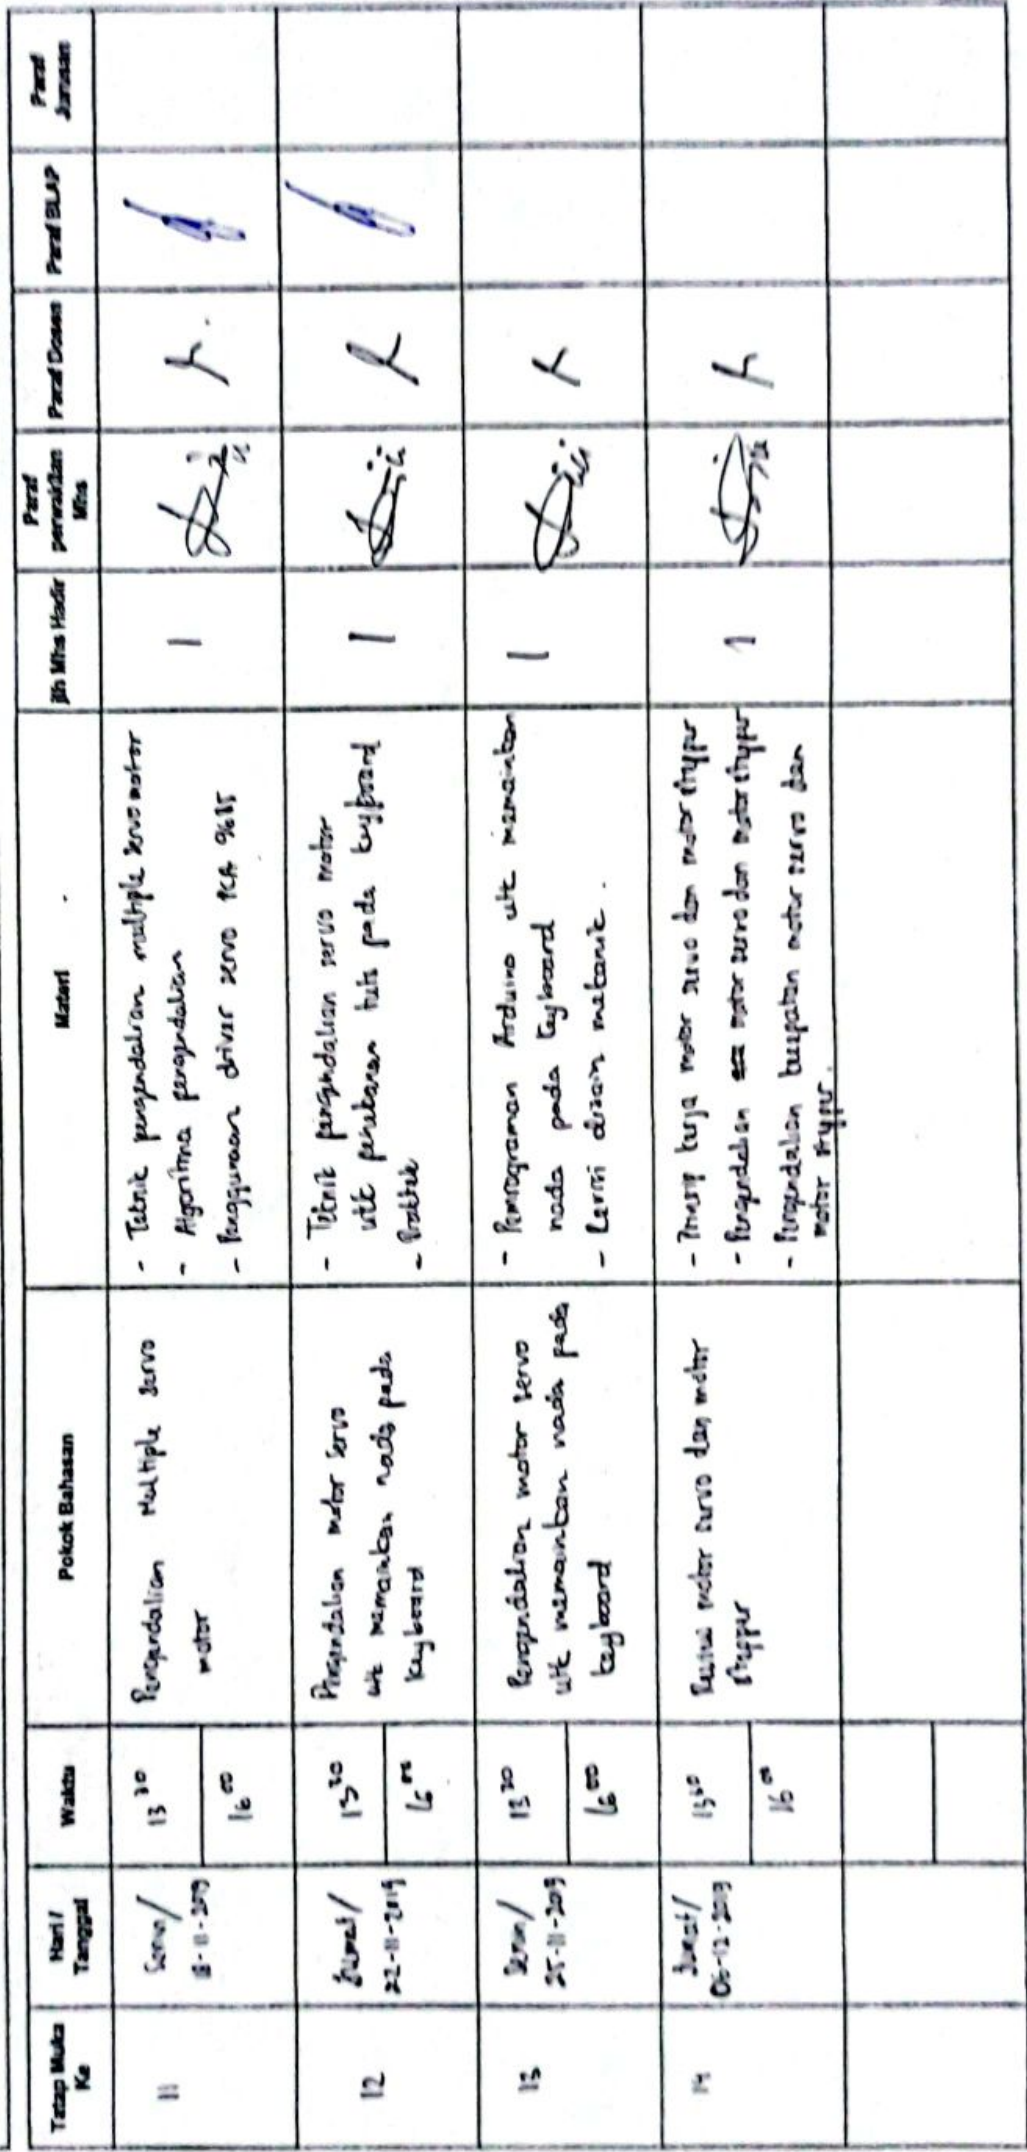 Tatap Muka
Ke
Hari /
Tanggal
Waktu
Pokok Bahasan
Materi
Jlh Mhs Hadir
Paraf
perwakilan
Mhs
Paraf Dosen
Paraf BLAP
Paraf
Jurusan
11
Senin/
18-11-2019
13 30
16 00
Pengendalian Multiple servo
motor
- Teknik pengendalian multiple servo motor
- Algoritma pengendalian
- Penggunaan driver servo PCA 9685
1
12
Jumat/
22-11-2019
13 30
16 00
Pengendalian motor servo
utk memainkan nada pada
keyboard
- Teknik pengendalian servo motor
utk penekanan tuts pada keyboard
- Praktek
1
13
Senin/
25-11-2019
13 30
16 00
Pengendalian motor servo
utk memainkan nada pada
keyboard
- Pemrograman Arduino utk memainkan
nada pada keyboard
- Revisi disain mekanik.
1
14
Jumat/
06-12-2019
13 30
16 00
motor servo dan motor
stepper
- Prinsip kerja motor servo dan motor stepper
- Pengendalian motor servo dan motor stepper
- Pengendalian kecepatan motor servo dan
motor stepper.
1